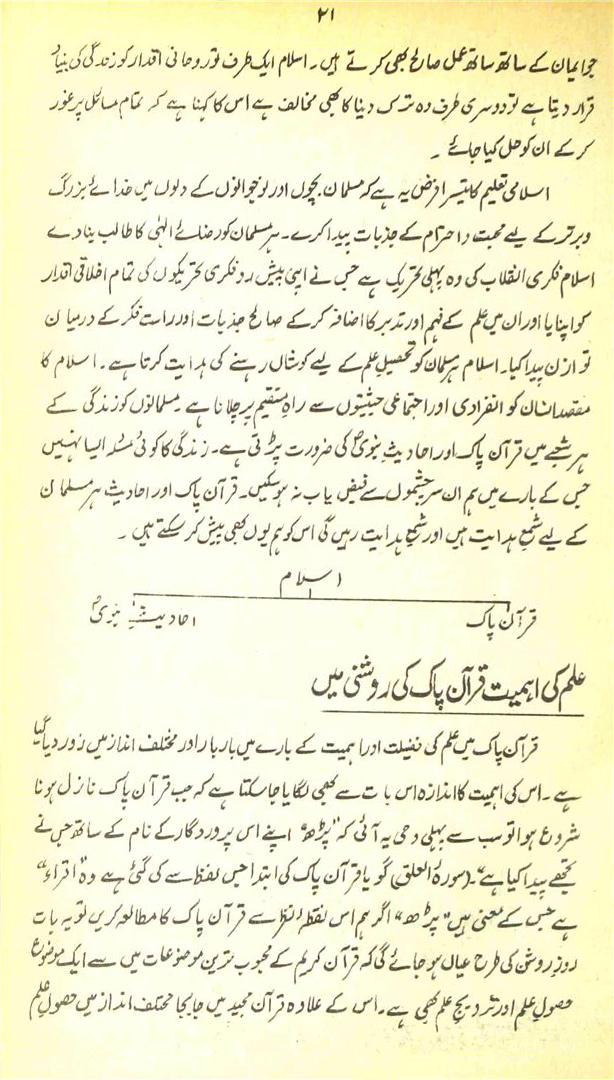 ۲۱
جو ایمان کے ساتھ ساتھ عمل صالح بھی کرتے ہیں۔ اسلام ایک طرف تو روحانی اقدار کو زندگی کی بنیاد
قرار دیتا ہے تو دوسری طرف وہ ترک دینا کا بھی مخالف ہے اس کا کہنا ہے کہ تمام مسائل پر غور
کرکے ان کو حل کیا جائے ۔
اسلامی تعلیم کا تیسرا فرض یہ ہے کہ مسلمان بچوں اور نوجوانوں کے دلوں میں خدائے بزرگ
و برتر کے لیے محبت و احترام کے جذبات پیدا کرے۔ ہر مسلمان کو رضائے الہٰی کا طالب بنا دے
اسلام فکری انقلاب کی وہ پہلی تحریک ہے جس نے اپنی پیش رو فکری تحریکوں کی تمام اخلاقی اقدار
کو اپنایا اور ان میں علم کے فہم اور تدبر کا اضافہ کرکے صالح جذبات اور راست فکر کے درمیان
توازن پیدا کیا۔ اسلام ہر مسلمان کو تحصیلِ علم کے لیے کوشاں رہنے کی ہدایت کرتا ہے۔ اسلام کا
مقصد انسان کو انفرادی اور اجتماعی حیثیتوں سے راہِ مستقیم پر چلانا ہے۔ مسلمانوں کو زندگی کے
ہر شعبے میں قرآن پاک اور احادیثِ نبویؐ کی ضرورت پڑتی ہے۔ زندگی کا کوئی مسئلہ ایسا نہیں
جس کے بارے میں ہم ان سرچشموں سے فیض یاب نہ ہو سکیں۔ قرآن پاک اور احادیث ہر مسلمان
کے لیے شمعِ ہدایت ہیں اور شمعِ ہدایت رہیں گی اس کو ہم یوں بھی پیش کر سکتے ہیں ۔
اسلام
قرآن پاک احادیثِ نبویؐ
علم کی اہمیت قرآن پاک کی روشنی میں
قرآن پاک میں علم کی فضیلت اور اہمیت کے بارے میں بار بار اور مختلف انداز میں زور دیا گیا
ہے۔ اس کی اہمیت کا اندازہ اس بات سے بھی لگایا جا سکتا ہے کہ جب قرآن پاک نازل ہونا
شروع ہوا تو سب سے پہلی وحی یہ آئی کہ "پڑھ" اپنے اس پروردگار کے نام کے ساتھ جس نے
تجھے پیدا کیا ہے"۔ (سورۂ العلق) گویا قرآن پاک کی ابتدا جس لفظ سے کی گئی ہے وہ "اقراء"
ہے جس کے معنی ہیں "پڑھ" اگر ہم اس نقطۂ نظر سے قرآن پاک کا مطالعہ کریں تو یہ بات
روزِ روشن کی طرح عیاں ہو جائے گی کہ قرآن کریم کے محبوب ترین موضوعات میں سے ایک موضوع
حصولِ علم اور ترویجِ علم بھی ہے۔ اس کے علاوہ قرآن مجید میں جا بجا مختلف انداز میں حصولِ علم